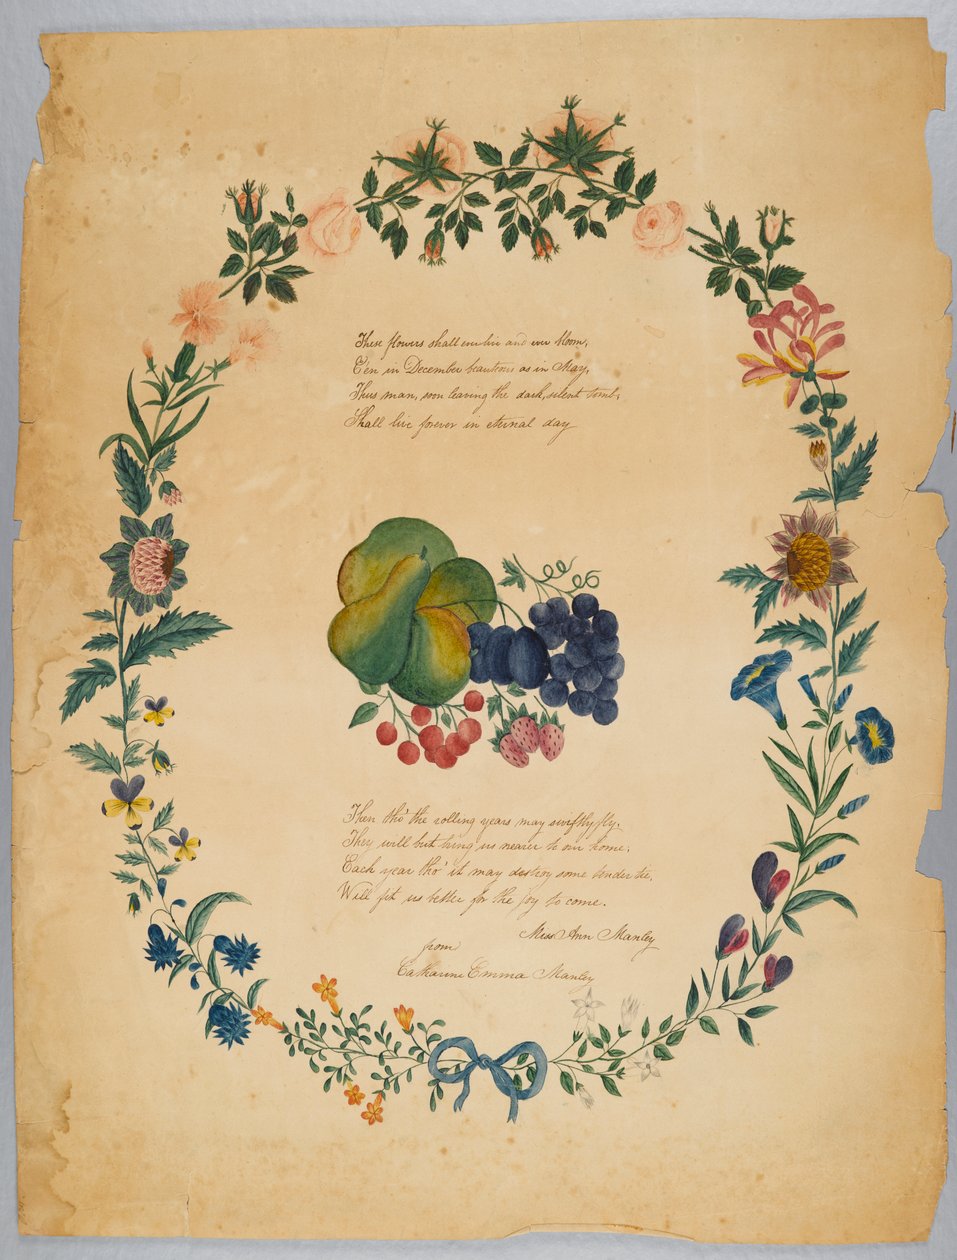 These flowers shall ever live and ever bloom,
E'en in December beauteous as in May,
Thus man, soon leaving the dark, silent tomb,
Shall live forever in eternal day
Then tho' the rolling years may swiftly fly,
They will but bring us nearer to our home;
Each year tho' it may destroy some tender tie,
Will fit us better for the joy to come.
Miss Ann Manley
from
Catharine Emma Manley